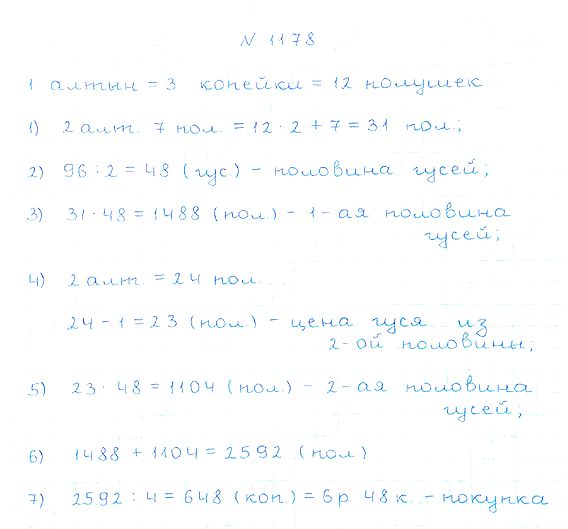 N 1178
1 алтын = 3 копейки = 12 полушек
1) 2 алт. 7 пол. = 12 · 2 + 7 = 31 пол;
2) 96 : 2 = 48 (гус.) - половина гусей;
3) 31 · 48 = 1488 (пол.) - 1-ая половина
гусей;
4) 2 алт. = 24 пол.
24 - 1 = 23 (пол.) - цена гуся из
2-ой половины;
5) 23 · 48 = 1104 (пол.) - 2-ая половина
гусей;
6) 1488 + 1104 = 2592 (пол)
7) 2592 : 4 = 648 (коп.) = 6 р. 48 к. - покупка